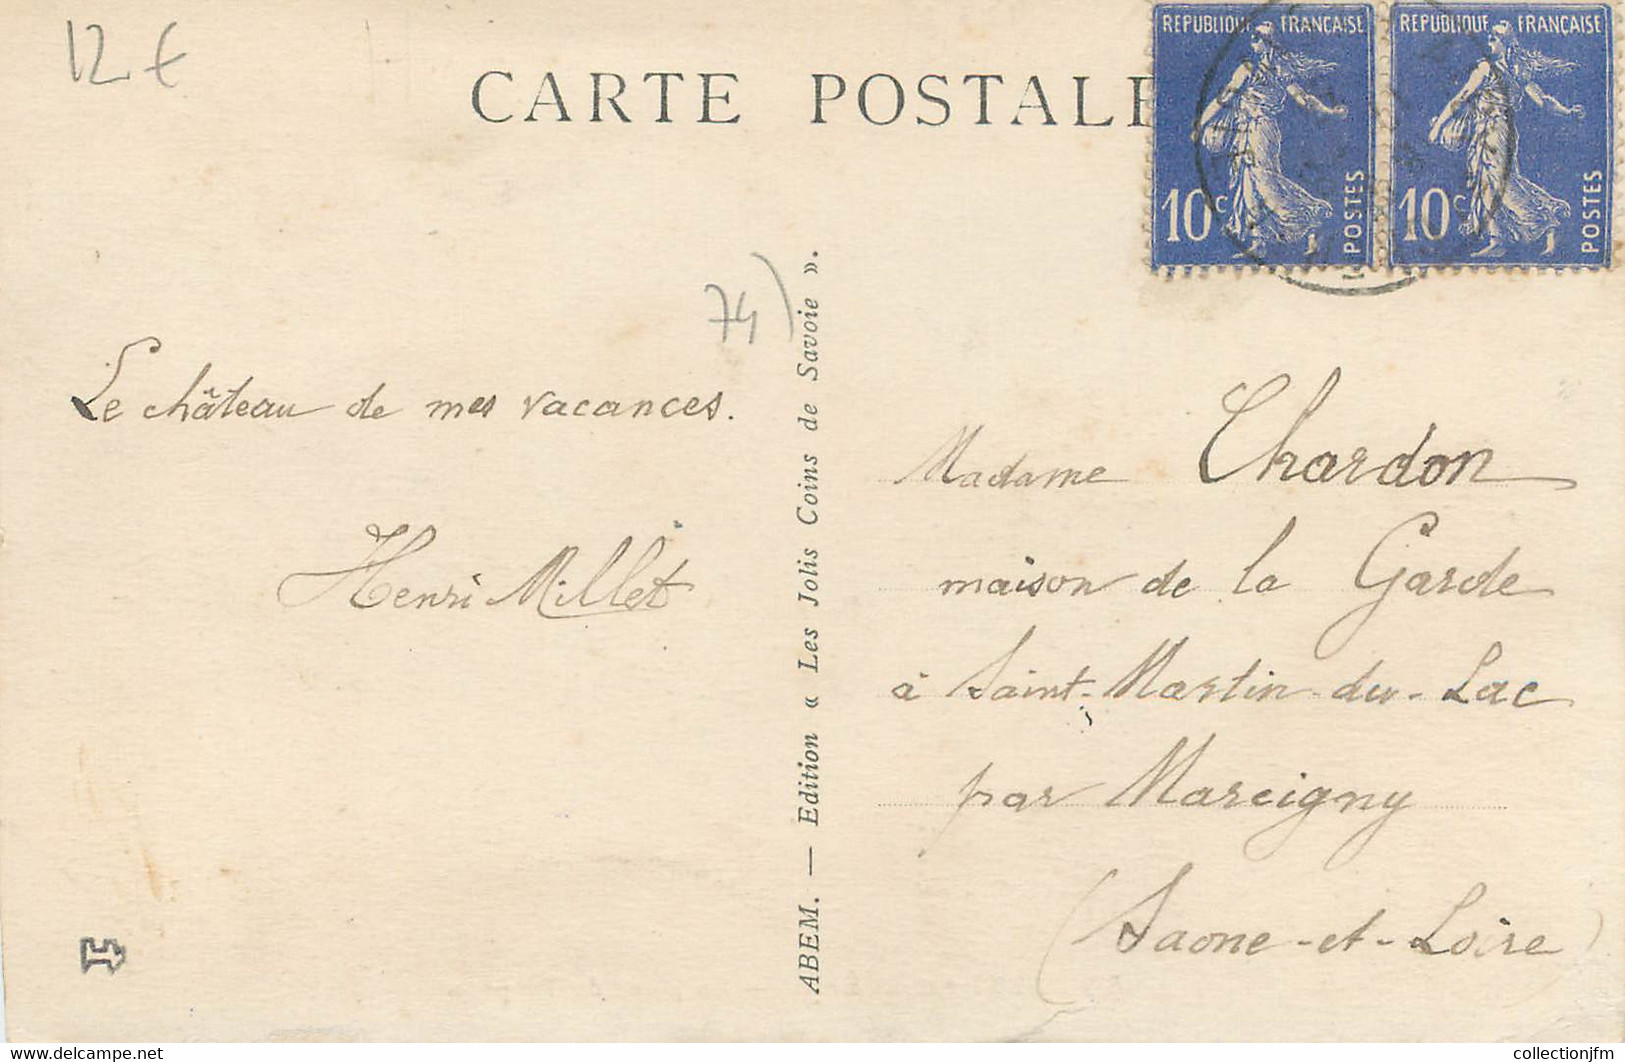 12 €
CARTE POSTALE
REPUBLIQUE FRANÇAISE
10c
POSTES
REPUBLIQUE FRANÇAISE
10c
POSTES
74)
Le château de mes vacances.
Henri Millet
ABEM. — Edition « Les Jolis Coins de Savoie ».
Madame Chardon
maison de la Garde
à Saint-Martin-du-Lac
par Marcigny
(Saone-et-Loire)
https://www.delcampe.net
collectionjfm